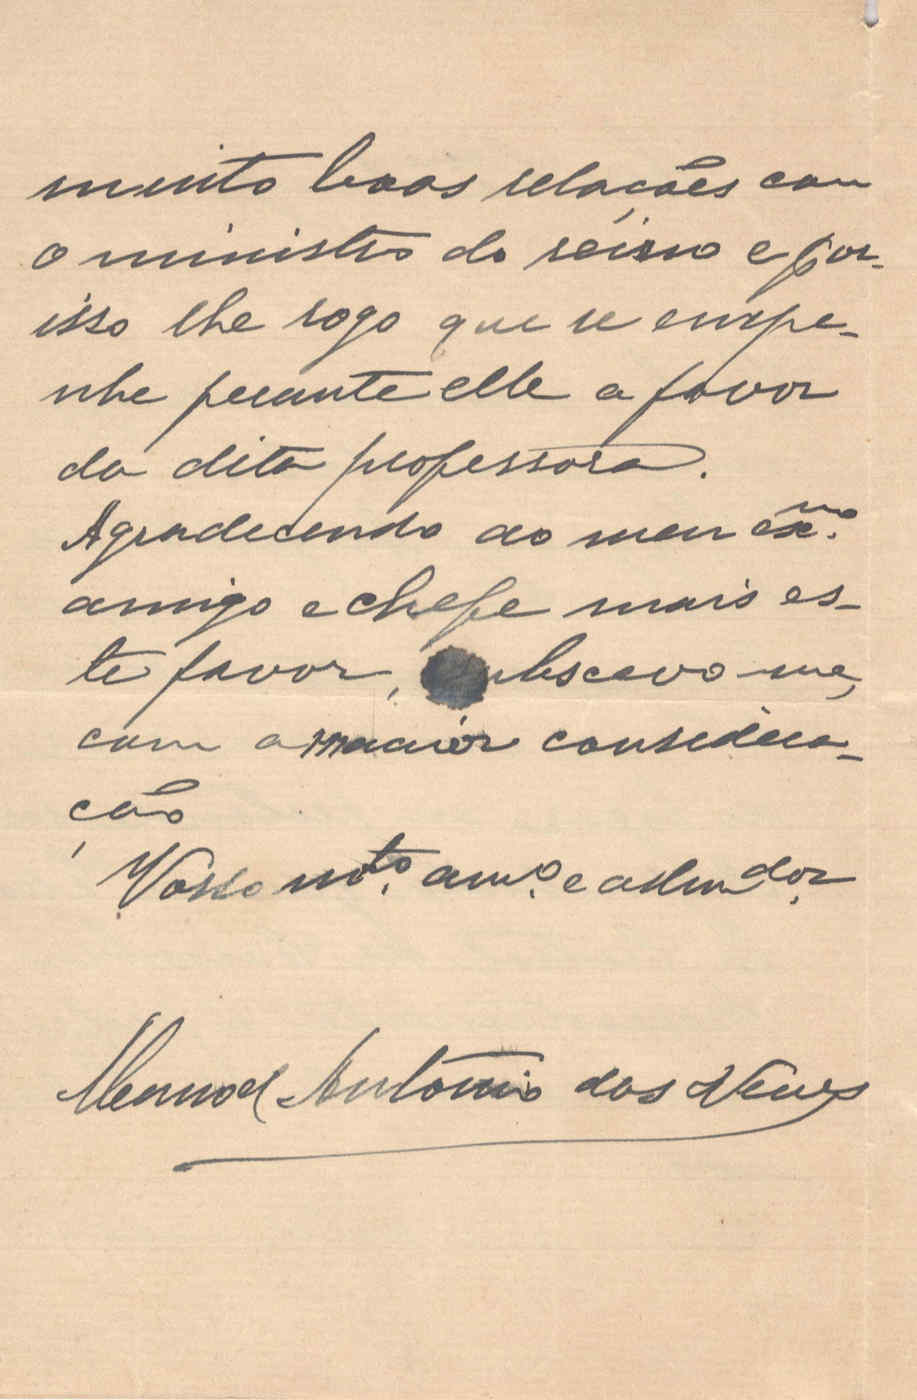 muito boas relações com
o ministro do reino e por-
isso lhe rogo que se empe-
nhe perante elle a favor
da dita professora.
Agradecendo ao meu ex.mo
amigo e chefe mais es-
te favor, subscrevo-me,
com a maior considera-
ção
Vosso m.to am.o e admdor.
Manoel António das Neves